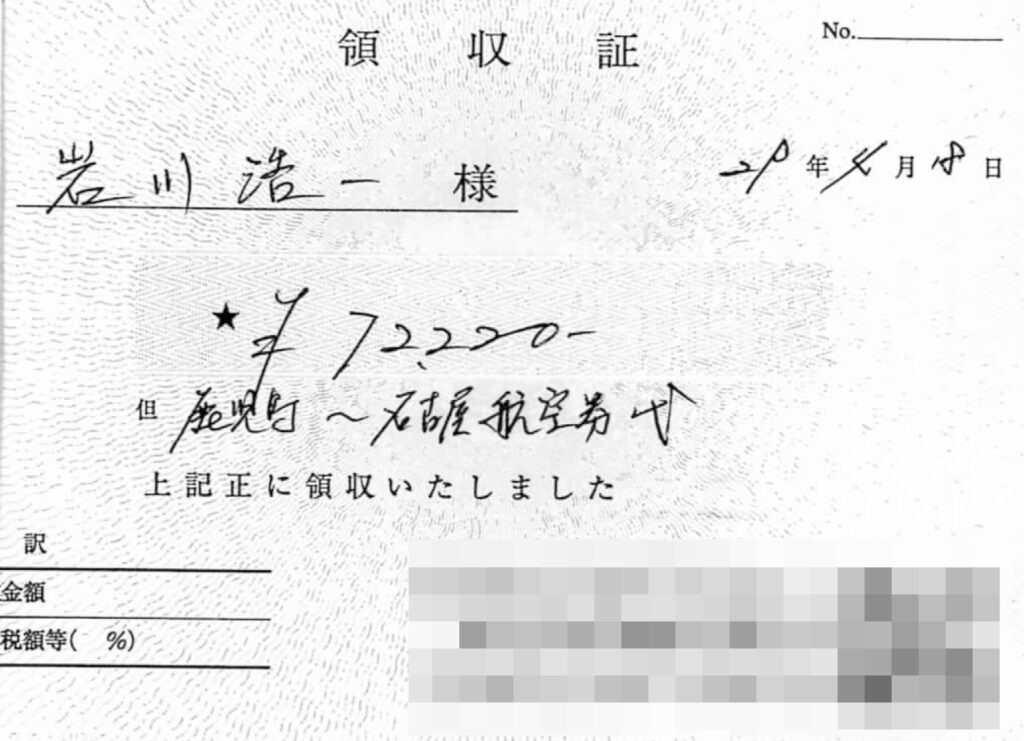 領収証
No.
岩川浩一 様
29年4月18日
★ ¥72,220-
但 鹿児島～名古屋航空券代
上記正に領収いたしました
訳
金額
税額等( %)